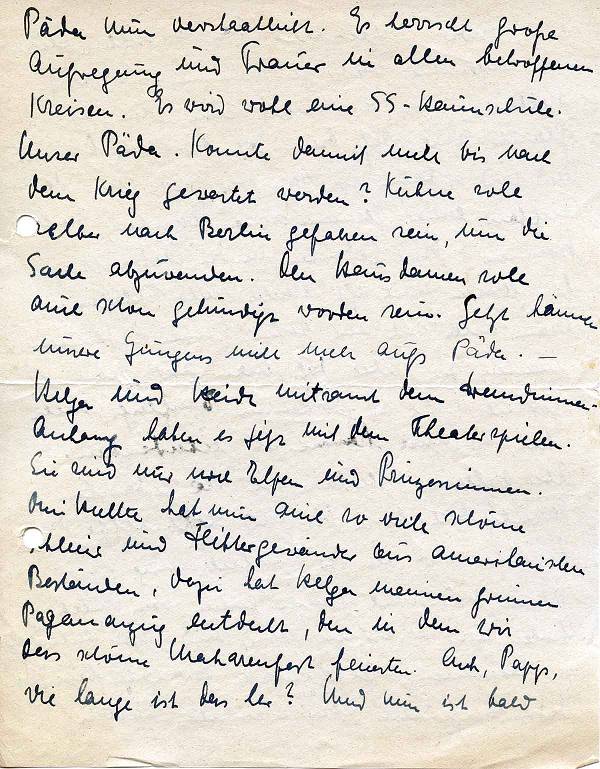 Päda nun verstaatlicht. Es herrscht große
Aufregung und Trauer in allen betroffenen
Kreisen. Es wird wohl eine SS-Heimschule.
Unser Päda. Konnte damit nicht bis nach
dem Krieg gewartet werden? Kühne soll
selber nach Berlin gefahren sein, um die
Sache abzuwenden. Den Hausdamen soll
auch schon gekündigt worden sein. Jetzt können
unsere Jungens nicht mehr aufs Päda. —
Helga und Heide mitsamt dem Freundinnen-
Anhang haben es jetzt mit dem Theaterspielen.
Sie sind nur noch Elfen und Prinzessinnen.
hat nun auch so viele schöne
Schleier und Flittergewänder aus amerikanischen
Beständen, dazu hat Helga meinen grünen
Pagenanzug entdeckt, den in dem wir
das schöne feierten. Ach, Papp,
wie lange ist das her? Und nun ist bald